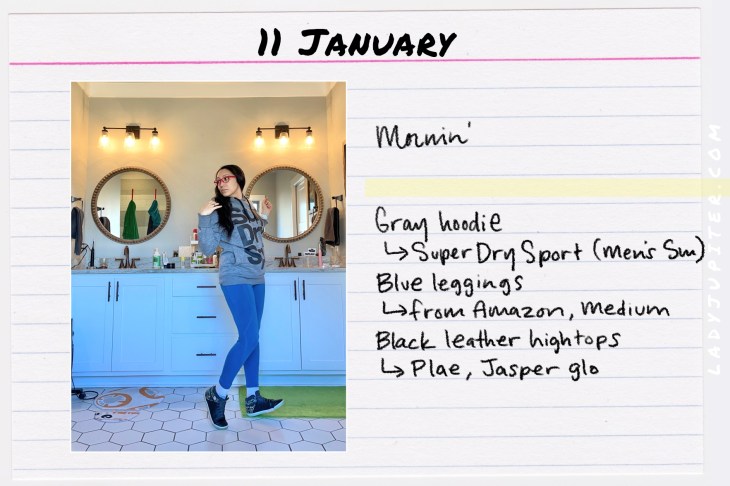 11 January
Mornin'
Gray hoodie
↳ SuperDry Sport (Men's Sm)
Blue leggings
↳ from Amazon, Medium
Black leather hightops
↳ Plae, Jasper glo
SUP
Dry
S
LADYJUPITER.COM